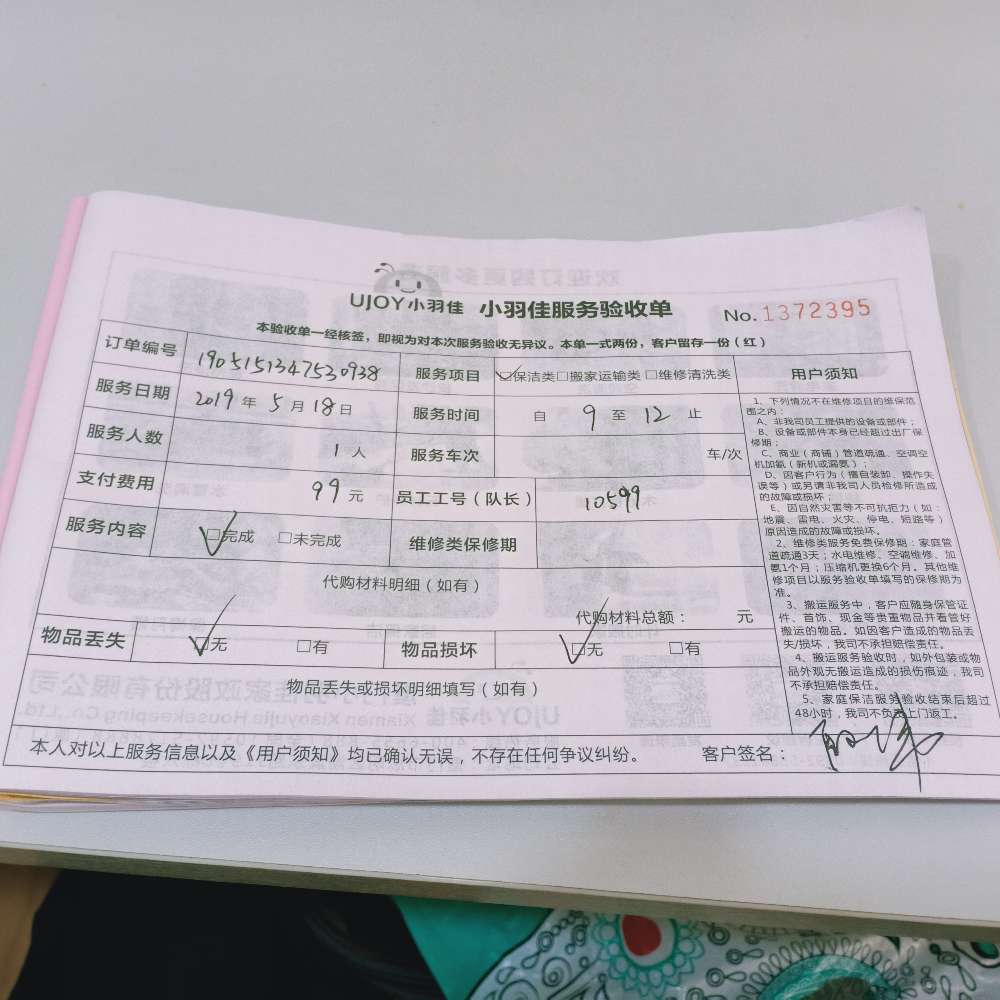 UJOY小羽佳 小羽佳服务验收单 No.1372395
本验收单一经核签，即视为对本次服务验收无异议。本单一式两份，客户留存一份（红）
订单编号 1905151347530938 服务项目 □保洁类□搬家运输类□维修清洗类
服务日期 2019年5月18日 服务时间 自 9 至 12 止
服务人数 1人 服务车次 车/次
支付费用 99元 员工工号（队长） 10599
服务内容 □完成 □未完成 维修类保修期
代购材料明细（如有）
代购材料总额： 元
物品丢失 □无 □有 物品损坏 □无 □有
物品丢失或损坏明细填写（如有）
用户须知
1、下列情况不在维修项目的维保范
围之内：
A、非我司员工提供的设备或部件；
B、设备或部件本身已经超过出厂保
修期；
C、商业（商铺）管道疏通、空调空
机加氨（新机或漏氨）；
D、因客户行为（擅自装卸、操作失
误等）或另请非我司人员检修所造成
的故障或损坏；
E、因自然灾害等不可抗拒力（如：
地震、雷电、火灾、停电、短路等）
原因造成的故障或损坏。
2、维修类服务免费保修期：家庭管
道疏通3天；水电维修、空调维修、加
氨1个月；压缩机更换6个月。其他维
修项目以服务验收单填写的保修期为
准。
3、搬运服务中，客户应随身保管证
件、首饰、现金等贵重物品并看管好
搬运的物品。如因客户造成的物品丢
失/损坏，我司不承担赔偿责任。
4、搬运服务验收时，如外包装或物
品外观无搬运造成的损伤痕迹，我司
不承担赔偿责任。
5、家庭保洁服务验收结束后超过
48小时，我司不负责上门返工。
本人对以上服务信息以及《用户须知》均已确认无误，不存在任何争议纠纷。 客户签名：